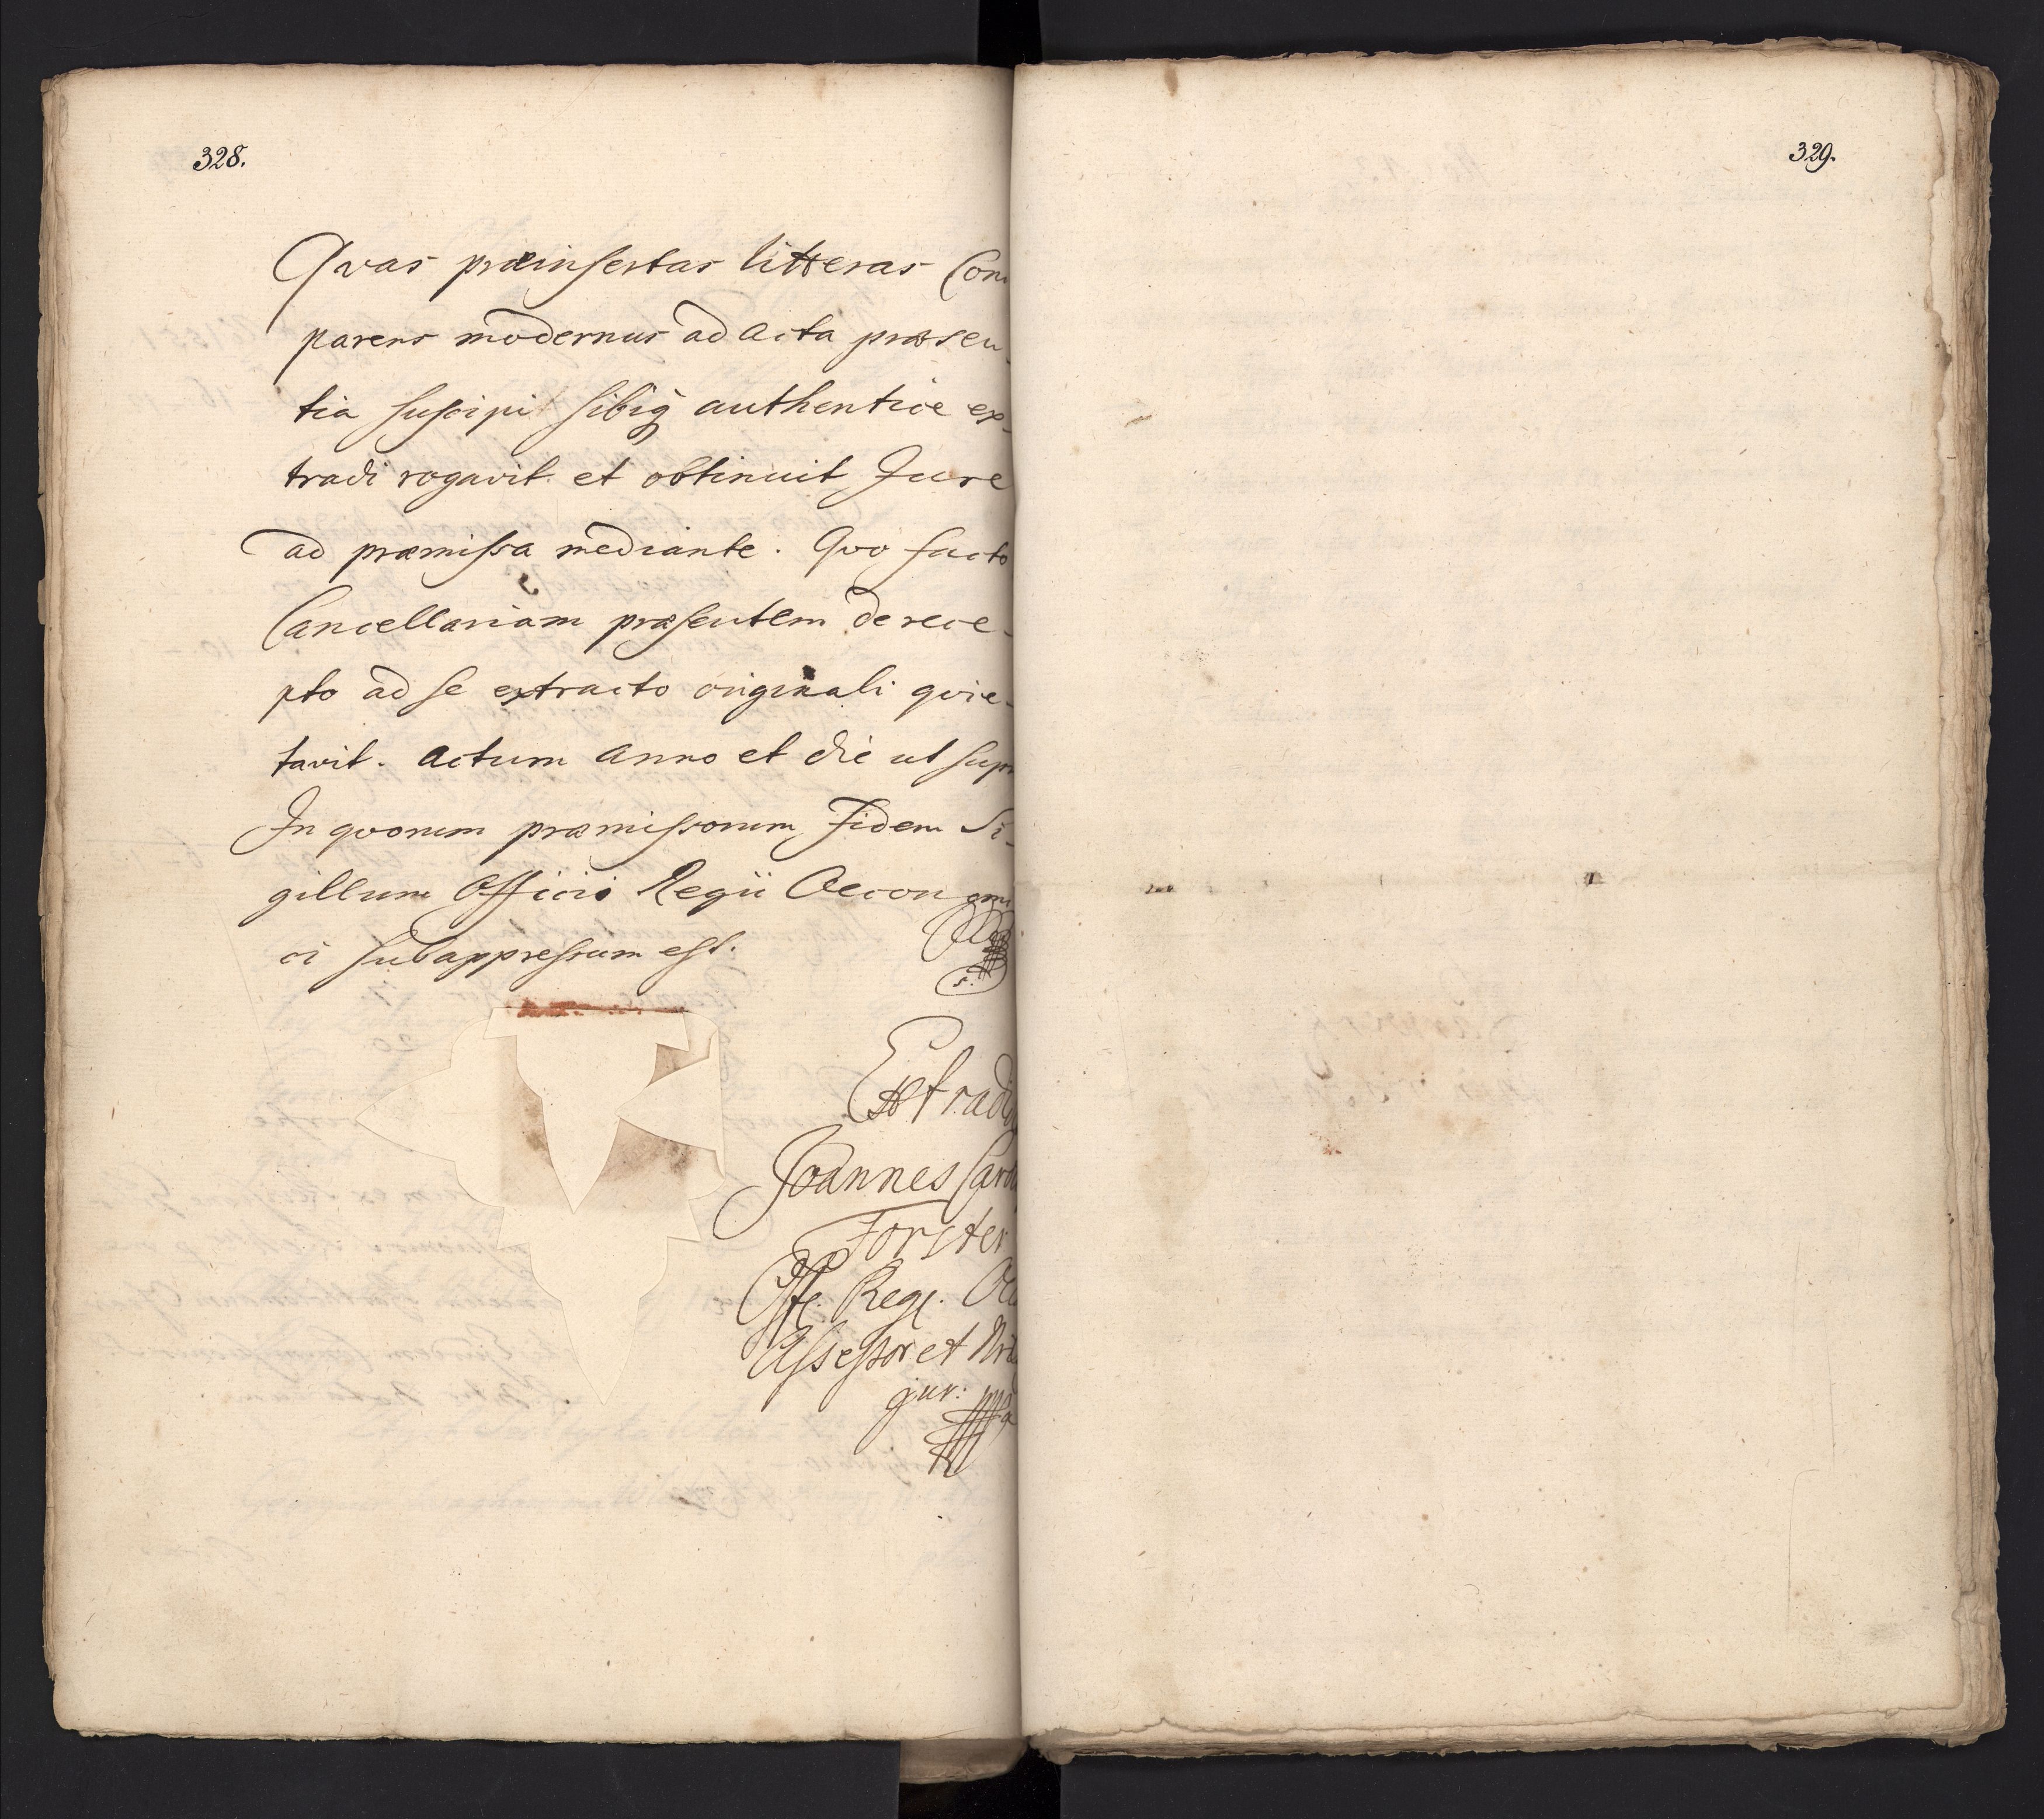 328.
Qvas præinsertas litteras Com
parens modernus ad acta præsen-
tia suscipi sibiq authentice ex-
tradi rogavit et obtinuit Jure
ad præmissa mediante. Qvo facto
Cancellariam præsentem de rece-
pto ad se extracto originali qvie-
tavit. Actum Anno et die ut supr
In qvorum præmissorum Fidem Si-
gillum Officii Regii Oeconomi
ci subappressum est.
Extradi
Joannes Caro
Forster
Off. Reg. Oec
Assessor et
jur: mpa
329.